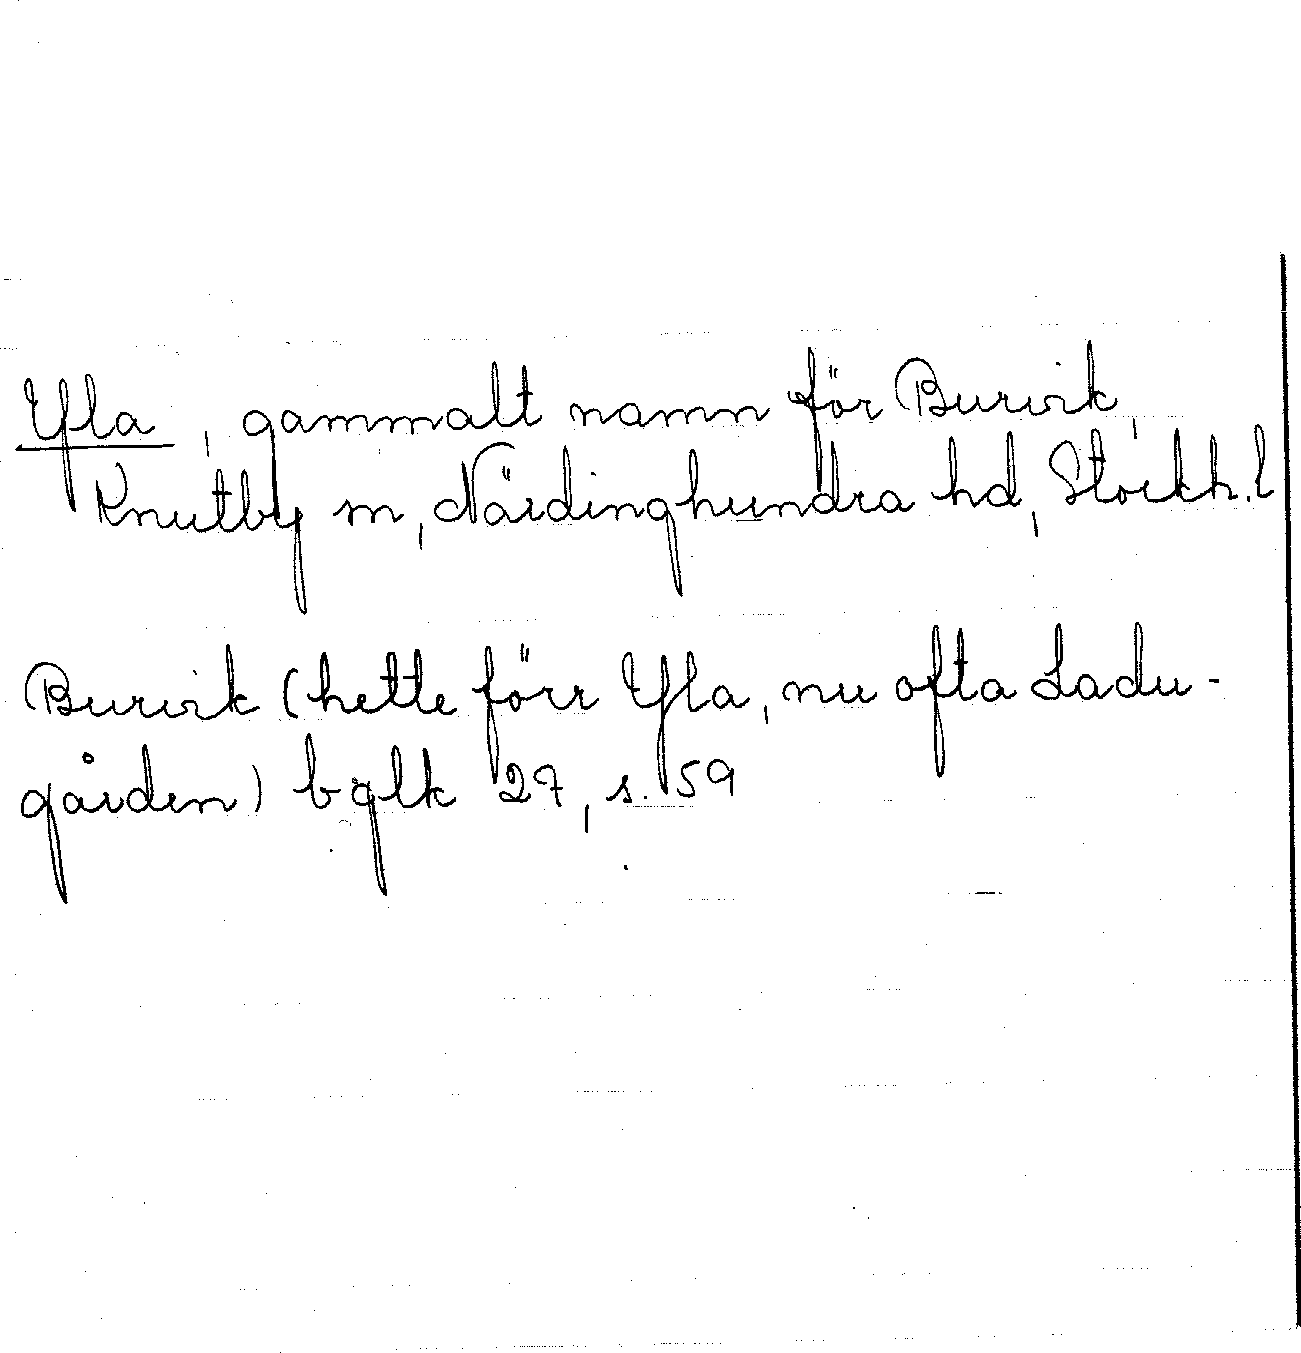 Yla, gammalt namn för Burvik,
Knutby sn, Närdinghundra hd, Stockh. l
Burvik (hette förr Yla, nu ofta Ladu-
gården) bglk 27, s. 59